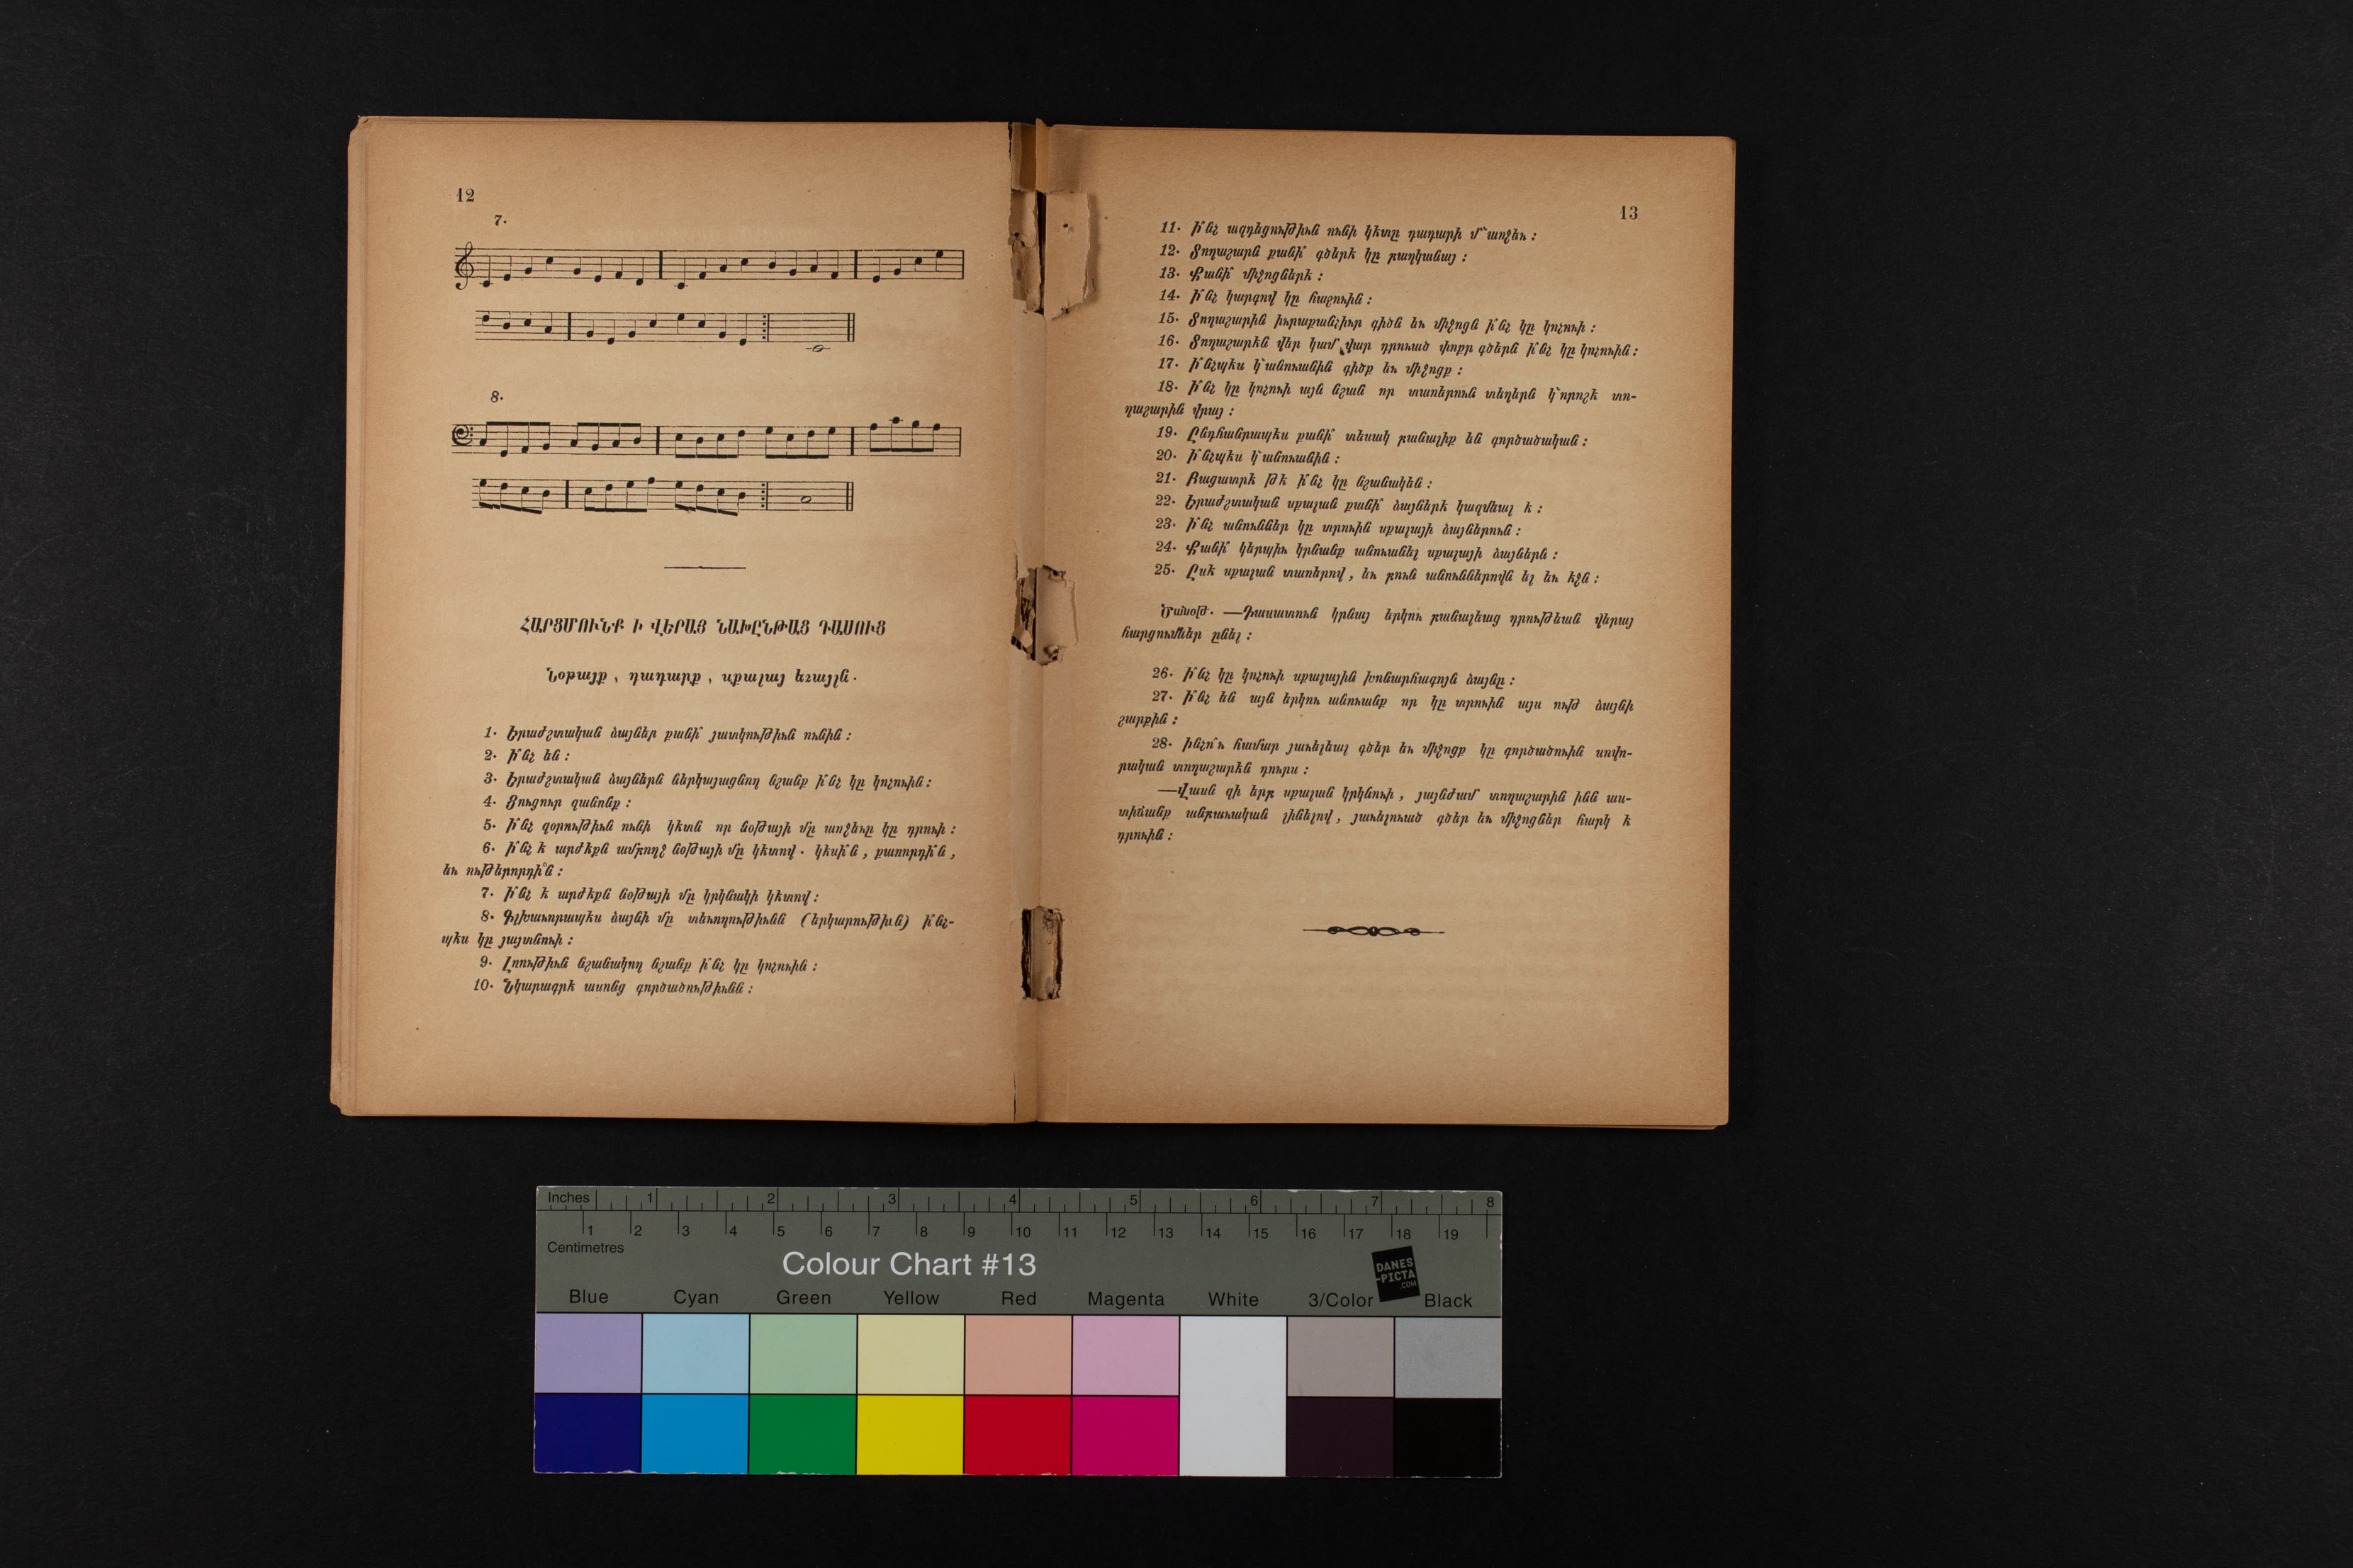 12
7.
8.
ՀԱՐՑՄՈՒՆՔ Ի ՎԵՐԱՅ ՆԱԽԸՆԹԱՑ ԴԱՍՈՒՑ
Նօթայք, դադարք, սքալայ եւայլն.
1. Երաժշտական ձայներ քանի՞ յատկութիւն ունին։
2. Ի՞նչ են։
3. Երաժշտական ձայներն ներկայացնող նշանք ի՞նչ կը կոչուին։
4. Ցուցուր զանոնք։
5. Ի՞նչ զօրութիւն ունի կէտն որ նօթայի մը առջեւը կը դրուի։
6. Ի՞նչ է արժէքն ամբողջ նօթայի մը կէտով. կէսի՞ն, քառորդի՞ն,
եւ ութերորդի՞ն։
7. Ի՞նչ է արժէքն նօթայի մը կրկնակի կէտով։
8. Գլխաւորապէս ձայնի մը տեւողութիւնն (երկարութիւն) ի՞նչ-
պէս կը յայտնուի։
9. Լռութիւն նշանակող նշանք ի՞նչ կը կոչուին։
10. Նկարագրէ ասոնց գործածութիւնն։
13
11. Ի՞նչ ազդեցութիւն ունի կէտը դադարի մ՚առջեւ։
12. Տողաշարն քանի՞ գծերէ կը բաղկանայ։
13. Քանի՞ միջոցներէ։
14. Ի՞նչ կարգով կը հաշուին։
15. Տողաշարին իւրաքանչիւր գիծն եւ միջոցն ի՞նչ կը կոչուի։
16. Տողաշարէն վեր կամ վար դրուած փոքր գծերն ի՞նչ կը կոչուին։
17. Ի՞նչպէս կ՚անուանին գիծք եւ միջոցք։
18. Ի՞նչ կը կոչուի այն նշան որ տառերուն տեղերն կ՚որոշէ տո-
ղաշարին վրայ։
19. Ընդհանրապէս քանի՞ տեսակ բանալիք են գործածական։
20. Ի՞նչպէս կ՚անուանին։
21. Բացատրէ թէ ի՞նչ կը նշանակեն։
22. Երաժշտական սքալան քանի՞ ձայներէ կազմեալ է։
23. Ի՞նչ անուններ կը տրուին սքալայի ձայներուն։
24. Քանի՞ կերպիւ կրնանք անուանել սքալայի ձայներն։
25. Ըսէ սքալան տառերով, եւ բուն անուններովն ել եւ էջն։
Ծանօթ. —Դասատուն կրնայ երկու բանալեաց դրութեան վերայ
հարցումներ ընել։
26. Ի՞նչ կը կոչուի սքալային խոնարհագոյն ձայնը։
27. Ի՞նչ են այն երկու անուանք որ կը տրուին այս ութ ձայնի
շարքին։
28. Ինչո՞ւ համար յաւելեալ գծեր եւ միջոցք կը գործածուին սովո-
րական տողաշարէն դուրս։
—Վասն զի երբ սքալան կրկնուի, յայնժամ տողաշարին ինն աս-
տիճանք անբաւական լինելով, յաւելուած գծեր եւ միջոցներ հարկ է
դրուին։
Inches 1 2 3 4 5 6 7 8
1 2 3 4 5 6 7 8 9 10 11 12 13 14 15 16 17 18 19
Centimetres
Colour Chart #13
DANES
-PICTA
.COM
Blue Cyan Green Yellow Red Magenta White 3/Color Black